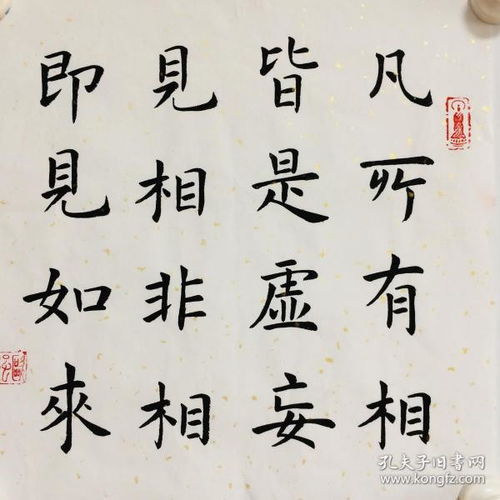 凡所有相
皆是虛妄
見相非相
即見如來
孔夫子旧书网
www.kongfz.com